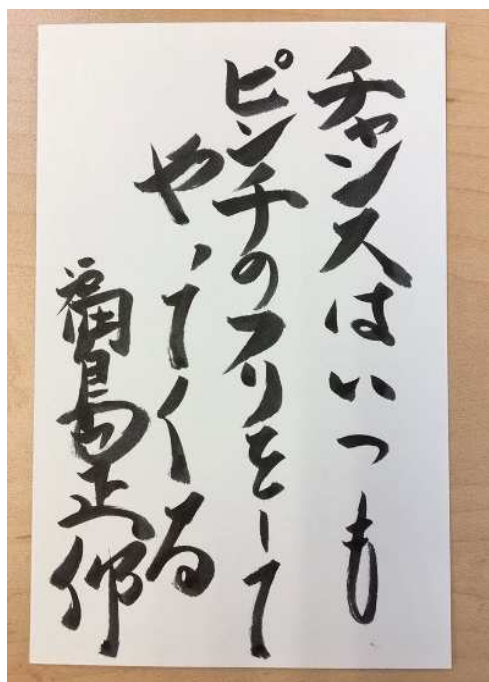 チャンスはいつも
ピンチのフリをして
やってくる
福島正伸